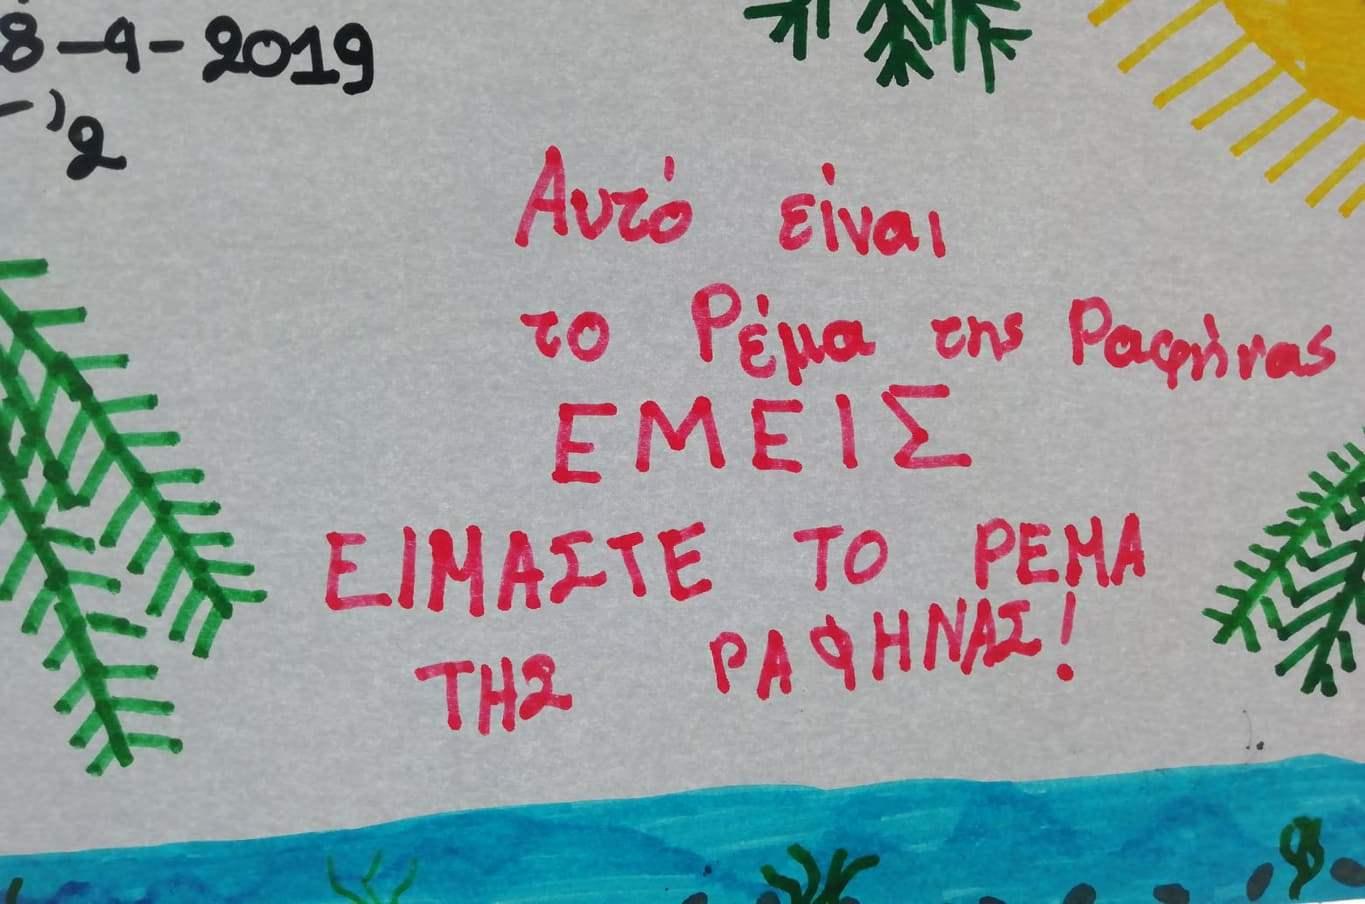 8-4-2019
2
Αυτό είναι
το Ρέμα της Ραφήνας
ΕΜΕΙΣ
ΕΙΜΑΣΤΕ ΤΟ ΡΕΜΑ
ΤΗΣ ΡΑΦΗΝΑΣ!